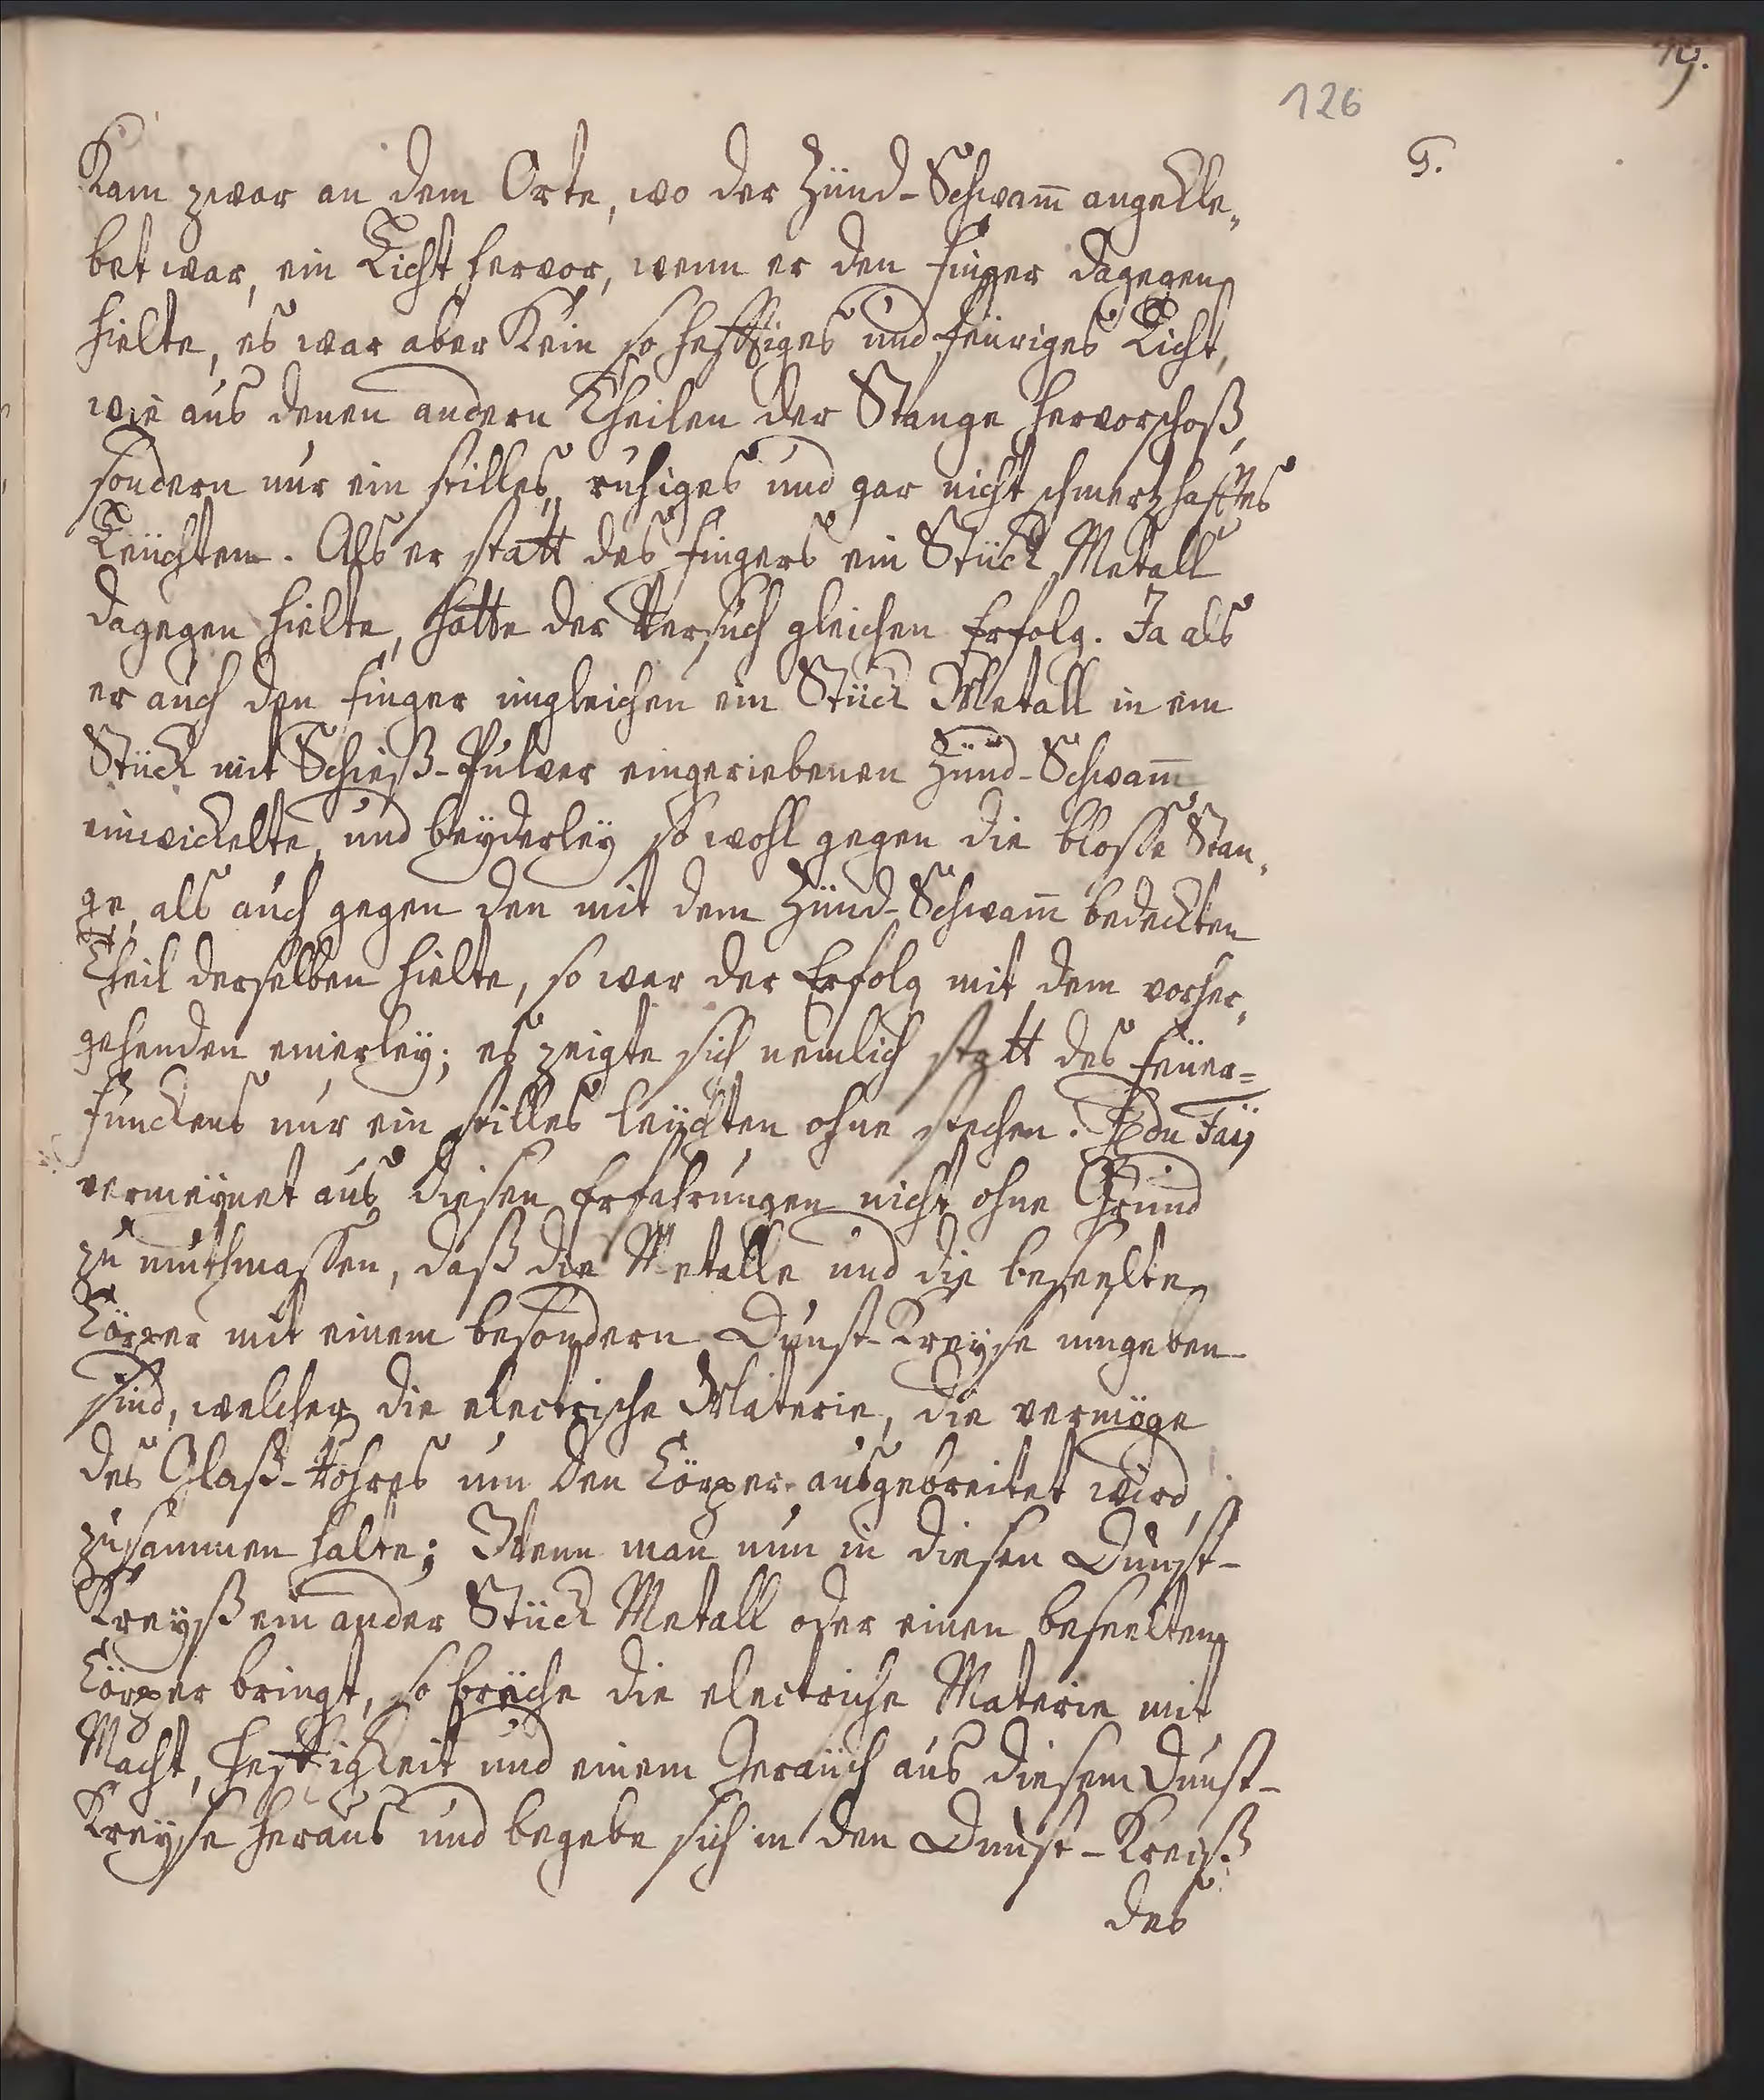 126
5.
Kam zwar an dem Orte, wo der Zünd-Schwam̅ angekle„
bet war, ein Licht hervor, wenn er den Finger dagegen
hielte, es war aber Kein so hefftiges und feüriges Licht,
wie aus denen andern Theilen der Stange hervorschoß,
sondern nur ein stilles, ruhiges und gar nicht schmertzhafftes
Leüchten. Als er statt des Fingers ein Stück Metall
dagegen hielte, hatte der Versuch gleichen Erfolg. Ja als
er auch den Finger ingleichen ein Stück Metall in ein
Stück mit Schieß-Pulver eingeriebenen Zünd-Schwam̅
einwickelte, und beÿderleÿ so wohl gegen die blosse Stan„
ge, als auch gegen den mit dem Zünd-Schwam̅ bedeckten
Theil derselben hielte, so war der Erfolg mit dem vorher„
gehenden einerleÿ; es zeigte sich nemlich statt des Feüer=
Funckens nur ein stilles leüchten ohne stechen. H du Faÿ
vermeÿnet aus diesen Erfahrungen nicht ohne Grund
zu muthmassen, daß die Metalle und die beseelten
Cörper mit einem besondern Dunst-Kreÿse umgeben
sind, welcher die electrische Materie, die vermöge
des Glaß-Rohres um den Cörper ausgebreitet wird,
zusammen halte; Wenn man nun in diesen Dunst-
Kreÿß ein ander Stück Metall oder einen beseelten
Cörper bringt, so breche die electriche Materie mit
Macht, Hefftigkeit und einem Geraüch aus diesem Dunst-
Kreÿse heraus und begebe sich in den Dunst-Kreiß
des